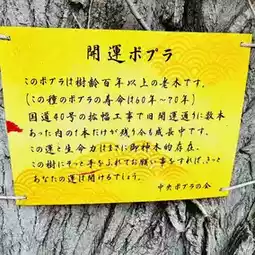 開運ポプラ
このポプラは樹齢百年以上の老木です。
(この種のポプラの寿命は60年~70年)
国道40号の拡幅工事で旧開運通りに数本
あった内の1本だけが残り今も成長中です。
この運と生命力はまさに御神木的存在。
この樹にそっと手をふれてお願い事をすれば、きっと
あなたの運は開けるでしょう。
中央ポプラの会